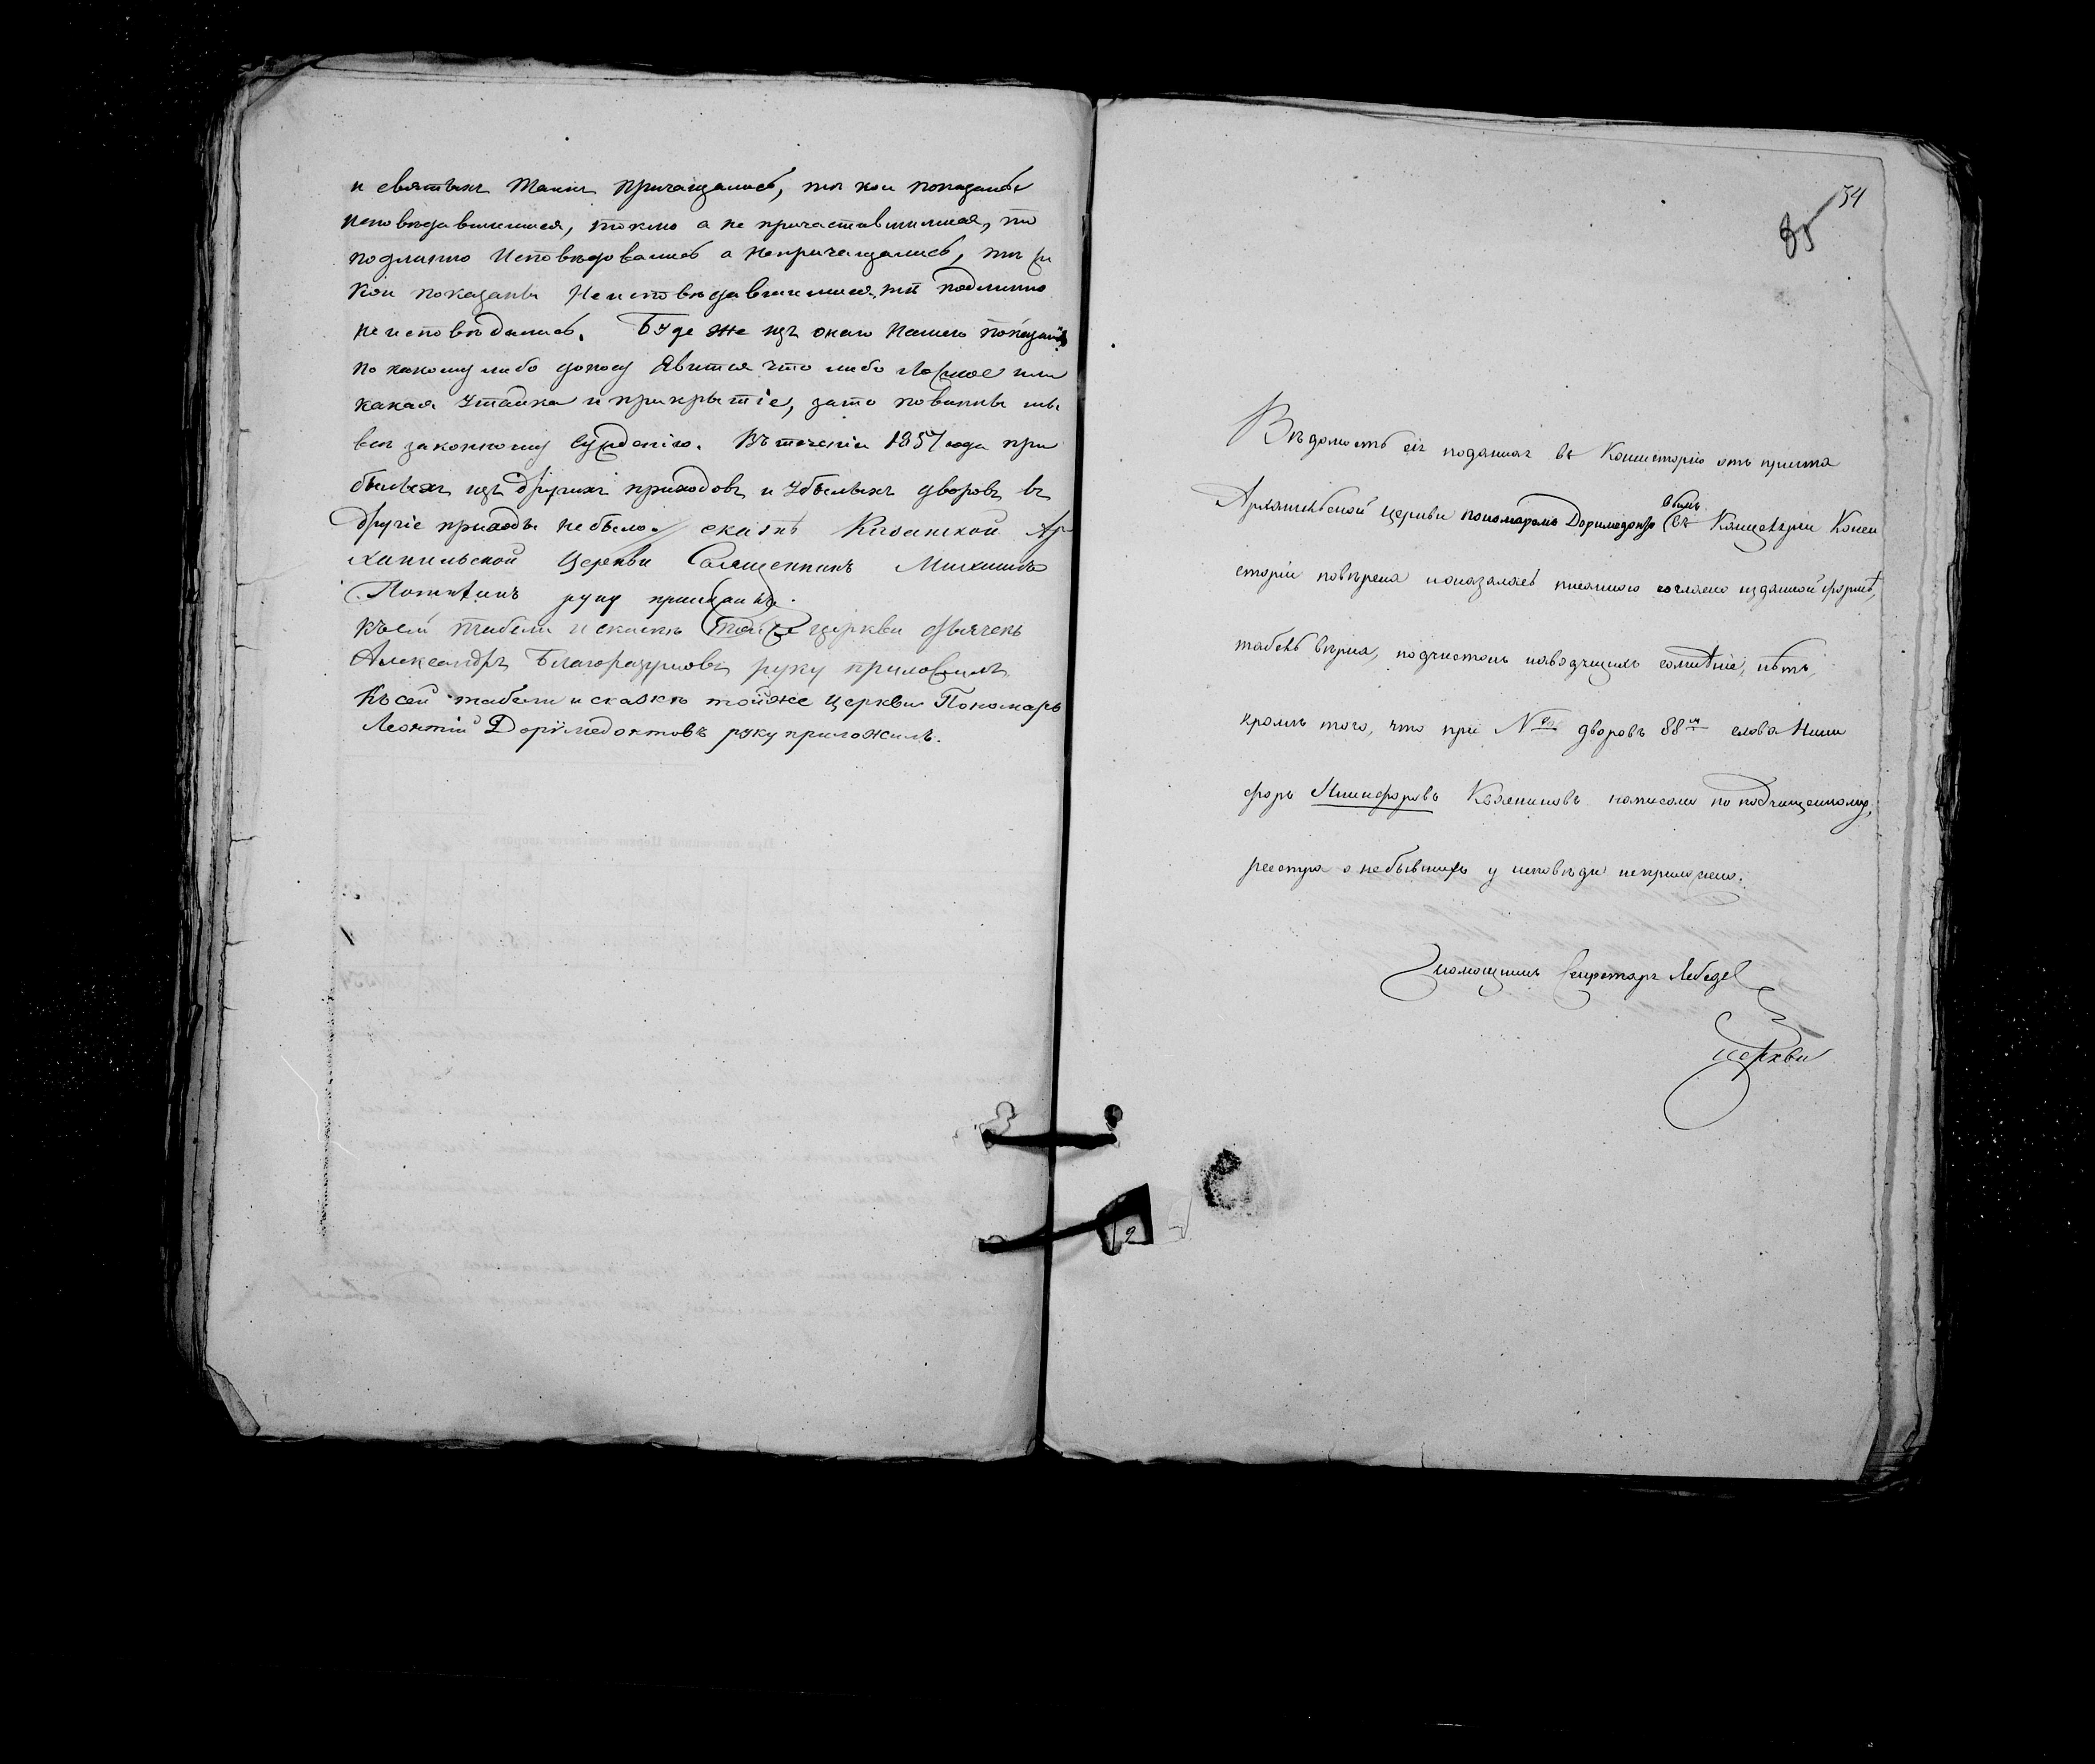 и святыхъ Таинъ Причащались, тѣ кои показаны
Исповѣдавшимися, токмо а не причастившимися, то
подлинно Исповѣдовались а Непричащались, тѣ же
Кои показаны Неисповѣдавшимися, тѣ подлинно
неисповѣдались. Буде же изъ онаго нашего показанія
по какому либо доносу Явится что либо ложное или
какая утайка и прикрытіе, зато повинны мы
всѣ законному сужденію. Въ теченіи 1857 года при
былыхъ изъ другихъ приходовъ и Убылыхъ дворовъ въ
другіе приходы не было. / сказкѣ Казанской Ар-
хангельской Церкви Священникъ Михаилъ
руку приложилъ.
Къ сей табели и сказкѣ той же церкви дьячекъ
Александръ Благоразумовъ руку приложилъ
Къ сей табели и сказкѣ тойже Церкви Пономарь
Леонтій Доримедонтовъ руку приложилъ.
34
85
Вѣдомость сія поданная въ Консисторію отъ причта
Архангельской церкви пономаремъ Доримедонто
вымъ
(въ Канцеляріи Конси
сторіи повѣрена и оказалась писанною согласно изданной формѣ,
табель вѣрна, подчистокъ наводящихъ сомнѣніе, нѣтъ,
кромѣ того, что при № дворовъ 88м слова Ники
форъ Никифоровъ написаны по подчищенному,
реестра о небывшихъ у исповѣди неприложено.
Помощникъ Секретаря Лебедев
Церкви